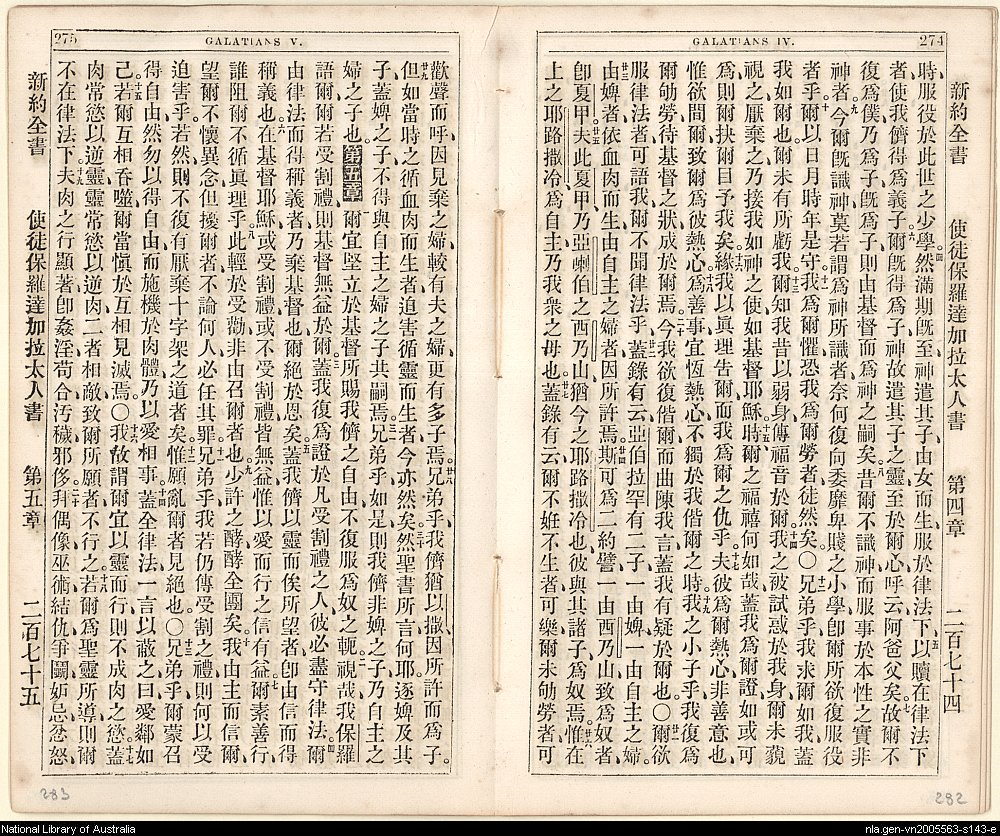 274
GALATIANS IV.
新約全書 使徒保羅達加拉太人書 第四章 二百七十四
時、服役於此世之少學、然滿期既至、神遣其子、由女而生、服於律法下、以贖在律法下
者、使我儕得爲義子、爾既得爲子、神故遣其子之靈至於爾心、呼云阿爸父矣、故爾不
復爲僕、乃爲子、既爲子、則由基督而爲神之嗣矣、昔爾不識神、而服事於本性之實非
神者、今爾既識神、莫若謂爲神所識者、奈何復向委靡卑賤之小學、卽爾所欲復服役
者乎、爾以日月時年是守、我爲爾懼、恐我爲爾勞者徒然矣、〇兄弟乎、我求爾如我、蓋
我如爾也、爾未有所虧我、爾知我昔以弱身傳福音於爾、我之被試惑於我身、爾未藐
視之厭棄之、乃接我如神之使、如基督耶穌、時爾之福禧何如哉、蓋我爲爾證、如或可
爲、則爾抉爾目予我矣、緣我以眞理告爾、而我爲爾之仇乎、夫彼爲爾熱心、非善意也、
惟欲間爾、致爾爲彼熱心、爲善事宜恆熱心、不獨於我偕爾之時、我之小子乎、我復爲
爾劬勞、待基督之狀成於爾焉、今我欲復偕爾、而曲陳我言、蓋我有疑於爾也、〇爾欲
服律法者可語我、爾不聞律法乎、蓋錄有云、亞伯拉罕有二子、一由婢、一由自主之婦、
由婢者依血肉而生、由自主之婦者、因所許焉、斯可爲二約譬、一由西乃山、致爲奴者、
卽夏甲、夫此夏甲乃亞喇伯之西乃山、猶今之耶路撒冷也、彼與其諸子爲奴焉、惟在
上之耶路撒冷爲自主、乃我衆之母也、蓋錄有云、爾不姙不生者可樂、爾未劬勞者可
282
275
GALATIANS V.
歡聲而呼、因見棄之婦、較有夫之婦、更有多子焉、兄弟乎、我儕猶以撒、因所許而爲子、
但如當時之循血肉而生者、迫害循靈而生者、今亦然矣、然聖書所言何耶、逐婢及其
子、蓋婢之子、不得與自主之婦之子共嗣焉、兄弟乎、如是則我儕非婢之子、乃自主之
婦之子也、第五章 爾宜堅立於基督所賜我儕之自由、不復服爲奴之軛、視哉、我保羅
語爾、爾若受割禮、則基督無益於爾、蓋我復爲證於凡受割禮之人、彼必盡守律法、爾
由律法而得稱義者、乃棄基督也、爾絕於恩矣、蓋我儕以靈而俟所望者、卽由信而得
稱義也、在基督耶穌、或受割禮、或不受割禮、皆無益、惟以愛而行之信有益、爾素善行、
誰阻爾不循眞理乎、此輕於受勸、非由召爾者也、少許之酵、酵全團矣、我由主而信爾、
望爾不懷異念、但擾爾者、不論何人、必任其罪、兄弟乎、我若仍傳受割之禮、則何以受
迫害乎、若然、則不復有厭棄十字架之道者矣、惟願亂爾者見絕也、〇兄弟乎、爾蒙召
得自由、然勿以得自由而施機於肉體、乃以愛相事、蓋全律法一言以蔽之、曰愛鄰如
己、若爾互相吞噬、爾當愼、於互相見滅焉、〇我故謂爾宜以靈而行、則不成肉之慾、蓋
肉常慾以逆靈、靈常慾以逆肉、二者相敵、致爾所願者不行之、若爾爲聖靈所導、則爾
不在律法下、夫肉之行顯著、卽姦淫、苟合、汚穢、邪侈、拜偶像、巫術、結仇、爭鬭、妬忌、忿怒、
新約全書 使徒保羅達加拉太人書 第五章 二百七十五
283
National Library of Australia
nla.gen-vn2005563-s143-e